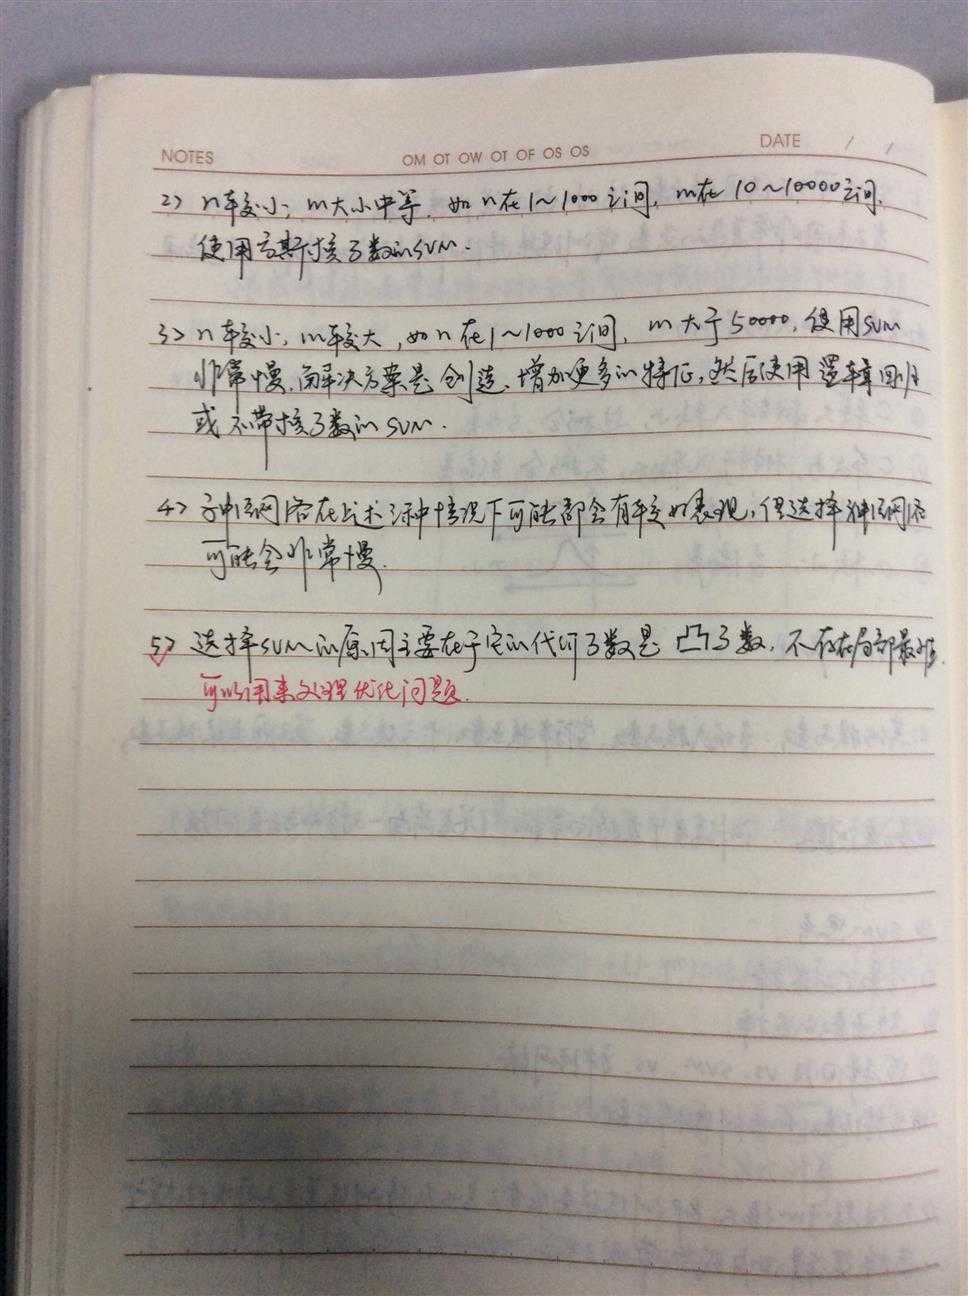 NOTES
OM OT OW OT OF OS OS
DATE / /
2) n较小, m大小中等, 如n在1~1000之间, m在10~10000之间,
使用高斯核函数的SVM.
3) n较小, m较大, 如n在1~1000之间, m大于50000, 使用SVM
非常慢, 解决方案是创造、增加更多的特征, 然后使用逻辑回归
或不带核函数的SVM.
4) 神经网络在上述三种情况下可能都会有较好表现, 但选择神经网络
可能会非常慢.
5) 选择SVM的原因主要在于它的代价函数是凸函数, 不存在局部最优.
可以用来处理优化问题.